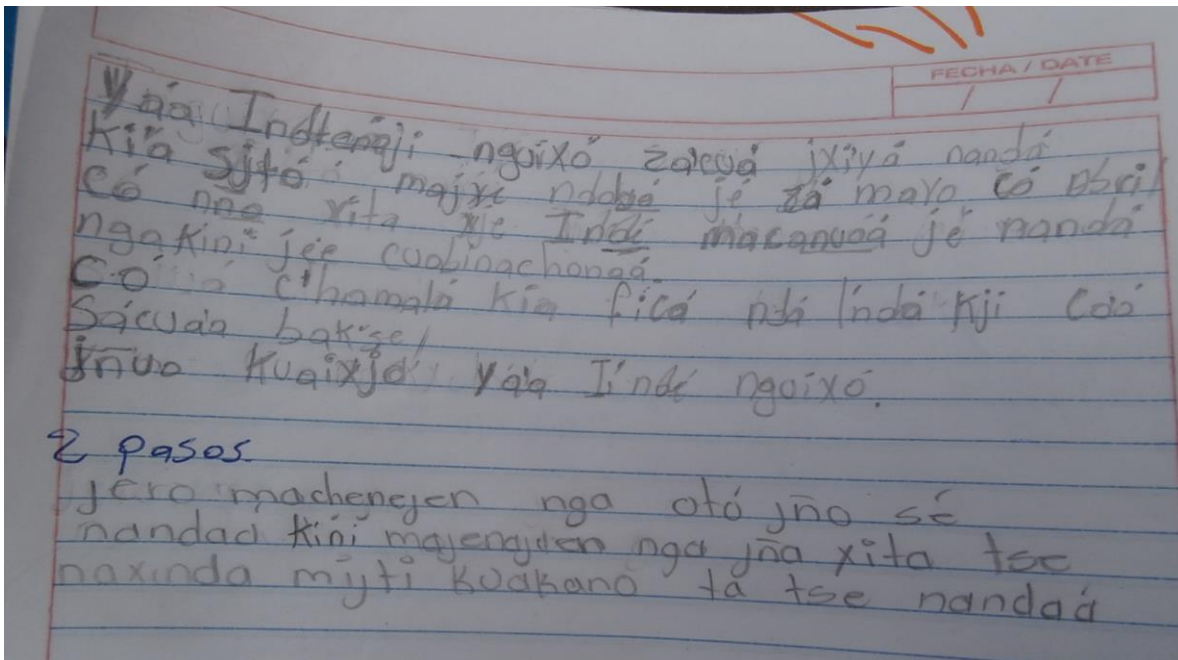 FECHA / DATE
/ /
Yáa Indtenaji nguixó zacuá jxiyá nandá
Kiá sjtó majxe ndobá jé zá mayo có abril
Có nña xita xje Indí macanuáá jé nandá
nga kini jee cuabinachangá
Có c'hamalá kia ficá ndá índá kji Cáó
Sácuáa bakse,
jñua kuaixjó yáa Índí nguixó.
2 pasos.
jero machenejen nga otó jño sé
nandad kini majengjnan nga jña xita tse
naxinda mijti kuakano ta tse nandaá